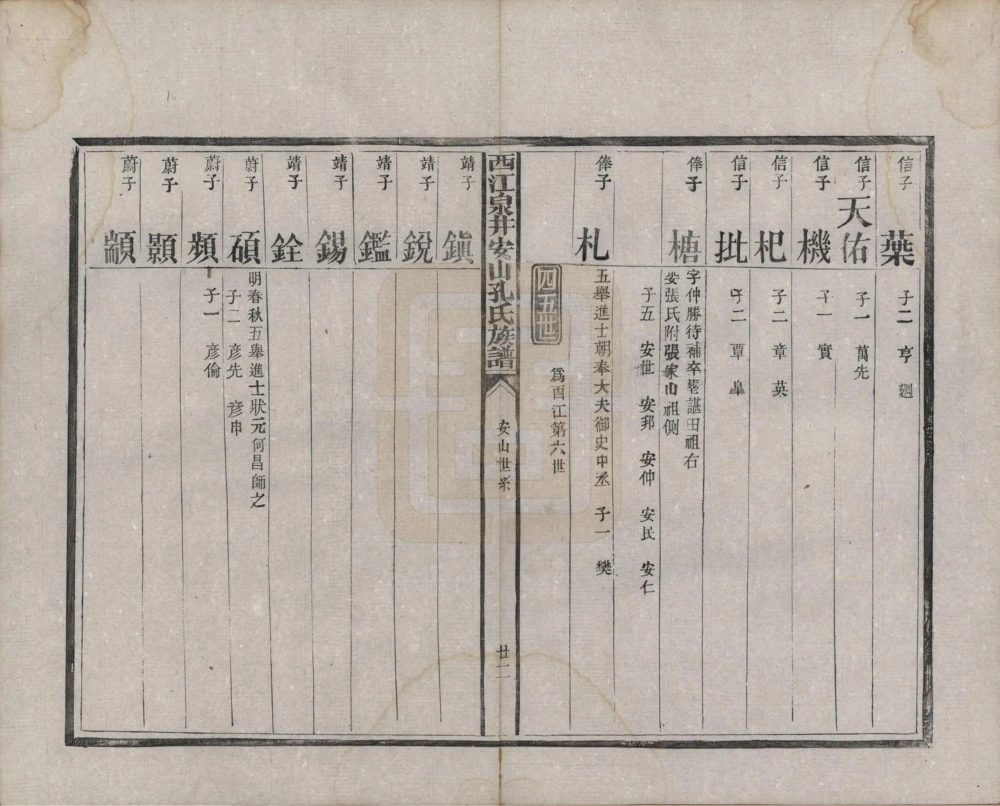 信子 葉 子二 亨 廻
信子 天佑 子一 萬先
信子 機 子一 實
信子 杞 子二 章 英
信子 批 子二 覃 皐
俸子 樁 字仲勝待補卒塟諶田祖右
娶張氏附張家山祖側
子五 安世 安邦 安仲 安民 安仁
俸子 札 五舉進士朝奉大夫御史中丞 子一 樊
四五世 為西江第六世
西江泉井安山孔氏族譜 安山世系 廿二
靖子 鎮
靖子 銳
靖子 鑑
靖子 錫
靖子 銓
蔚子 碩 明春秋五舉進士狀元何昌師之
子二 彦先 彦申
蔚子 頻 子一 彦倫
蔚子 顥
蔚子 顓